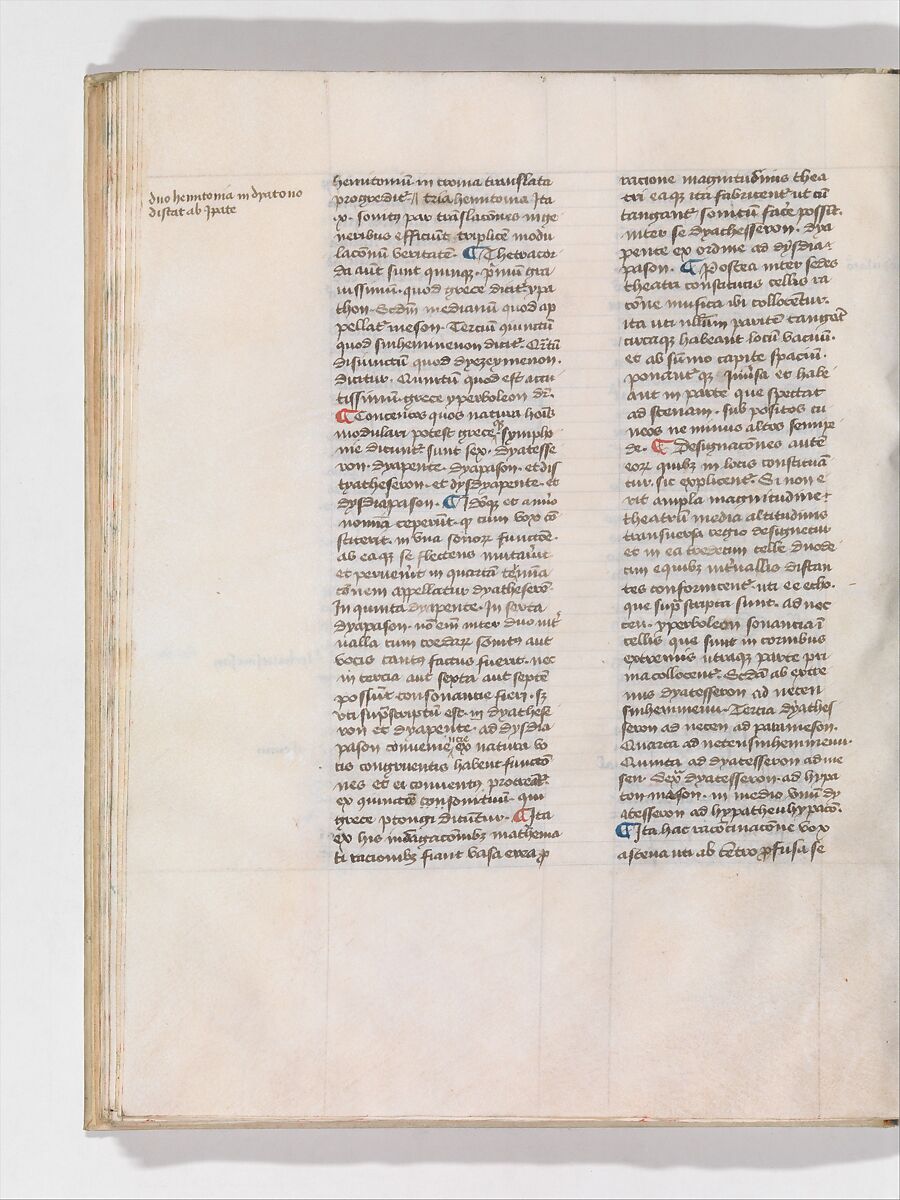 duo hemitonia in dyatono
distat ab Ipate
hemitoniū in croma translata
progredit᷑ tria hemitonia Ita
x. sonitꝰ par trāslacōnes in ge
neribus efficiūt triplicē modu
lacōnū veritatē. ¶ Thetracor
da aūt sunt quinqꝫ. p̄mū gra
uissimū. quod grece dicit᷑ ypa
thon. Scd̄m medianū quod ap
pellat᷑ meson. Terciū quinctū
quod sinhemmenon dicit᷑. Q̄rtū
disiunctū quod dyezeymenon.
dicitur. Quintū quod est acu
tissimū. grece yperboleon dr̄.
¶ Concentos quos natura hoīs
modulari potest grece qꝫ sympho
nie dicūt᷑ sunt sex. Dyatesse
ron. dyapente. dyapason. et dis
tyatheseron. et dysdyapente. et
dysdiapason. ¶ Idōqꝫ et a nūo
nomīa ceperūt. ꝙ cum vox cō
stiterit. in vna sonoꝝ functōe.
ab eaqꝫ se flectens mutauīt
et peruenīt in quartā t̄mīa
cōnem appellatur dyatheserō.
In quinta dyapente. In sexta
dyapason. nō eīm inter duo int̄
ualla cum cordaꝝ sonitꝰ aut
vocis cantꝰ factus fuerit. nec
in tercia aut septa aut septē
possūt consonancie fieri. sꝫ
vti sup̄scriptū est. in dyathese
ron et dyapente. ad dysdia
pason conueniēncie ex natura vo
cis congruentis habent functō
nes et ei conuentꝰ procreāt᷑.
ex quinctō consonituū. qui
grece ptongi dicūtur. ¶ Ita
ex his indagacōnibꝫ mathema
ti racionibꝫ fiant vasa erea ꝓ
racione magnitudinis thea
tri eaqꝫ ita fabricent᷑ ut cū
tangant᷑ sonitū fac̄e possīt.
inter se dyathesseron. dya
pente ex ordine ad dysdia
pason. ¶ Postea inter sedes
theatri constitutis cellis ra
cōne musica ibi collocētur.
ita uti nullūm parietē tangāt
circaqꝫ habeant locū vacuū.
et ab sūmo capite spaciū.
ponāt᷑ qꝫ inūsa et habe
ant in parte que spectat
ad scenam. sub positos cu
neos ne minus altos semipe
de. ¶ Designacōnes autē
eoꝝ quibꝫ in locis constituā
tur. sic explicent᷑. Si non e
rit ampla magnitudine
theatrū media altitudinis
transuersa regio designetur
et in ea tredecim celle duode
cim equibꝫ int̄uallis distan
tes conformicent᷑. uti ee echo.
que sup̄ scripta sunt. ad nec
ceu. yperboleon sonancia ī
cellis que sunt in cornibus
extremis utraqꝫ parte pri
ma collocent᷑. Scdā ab extre
mis dyatesseron ad neten
sinhemmenū. Tercia dyathes
seron ad neten ad parameson.
Quarta ad netensinhemmenu.
Quinta ad dyatesseron ad me
sen. Sex̄ dyatesseron. ad hypa
ton meson. in medio vnū dy
atesseron ad hypatheu hypatō.
¶ Ita hac racōcinacōne vox
a scena uti ab cētro ꝓfusa se